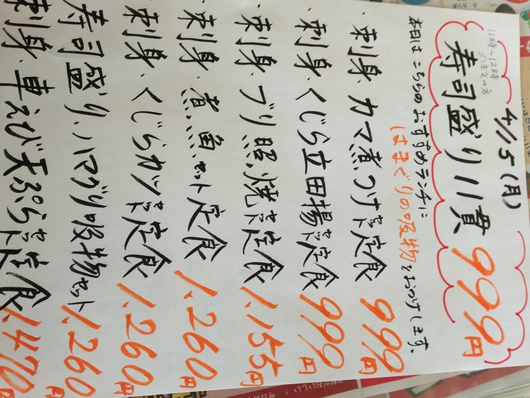 4/15(月)
11時〜12時
ご注文の方
寿司盛り11貫 999円
本日は こちらのおすすめランチに
はまぐりの吸物をお付けします。
・刺身、カマ煮つけ定食 999円
・刺身、くじら立田揚定食 999円
・刺身、ブリ照焼定食 1,155円
・刺身、煮魚セット定食 1,260円
・刺身、くじらカツ定食 1,260円
寿司盛り、ハマグリ吸物セット 1,260円
刺身、車えび天ぷら定食 1,470円